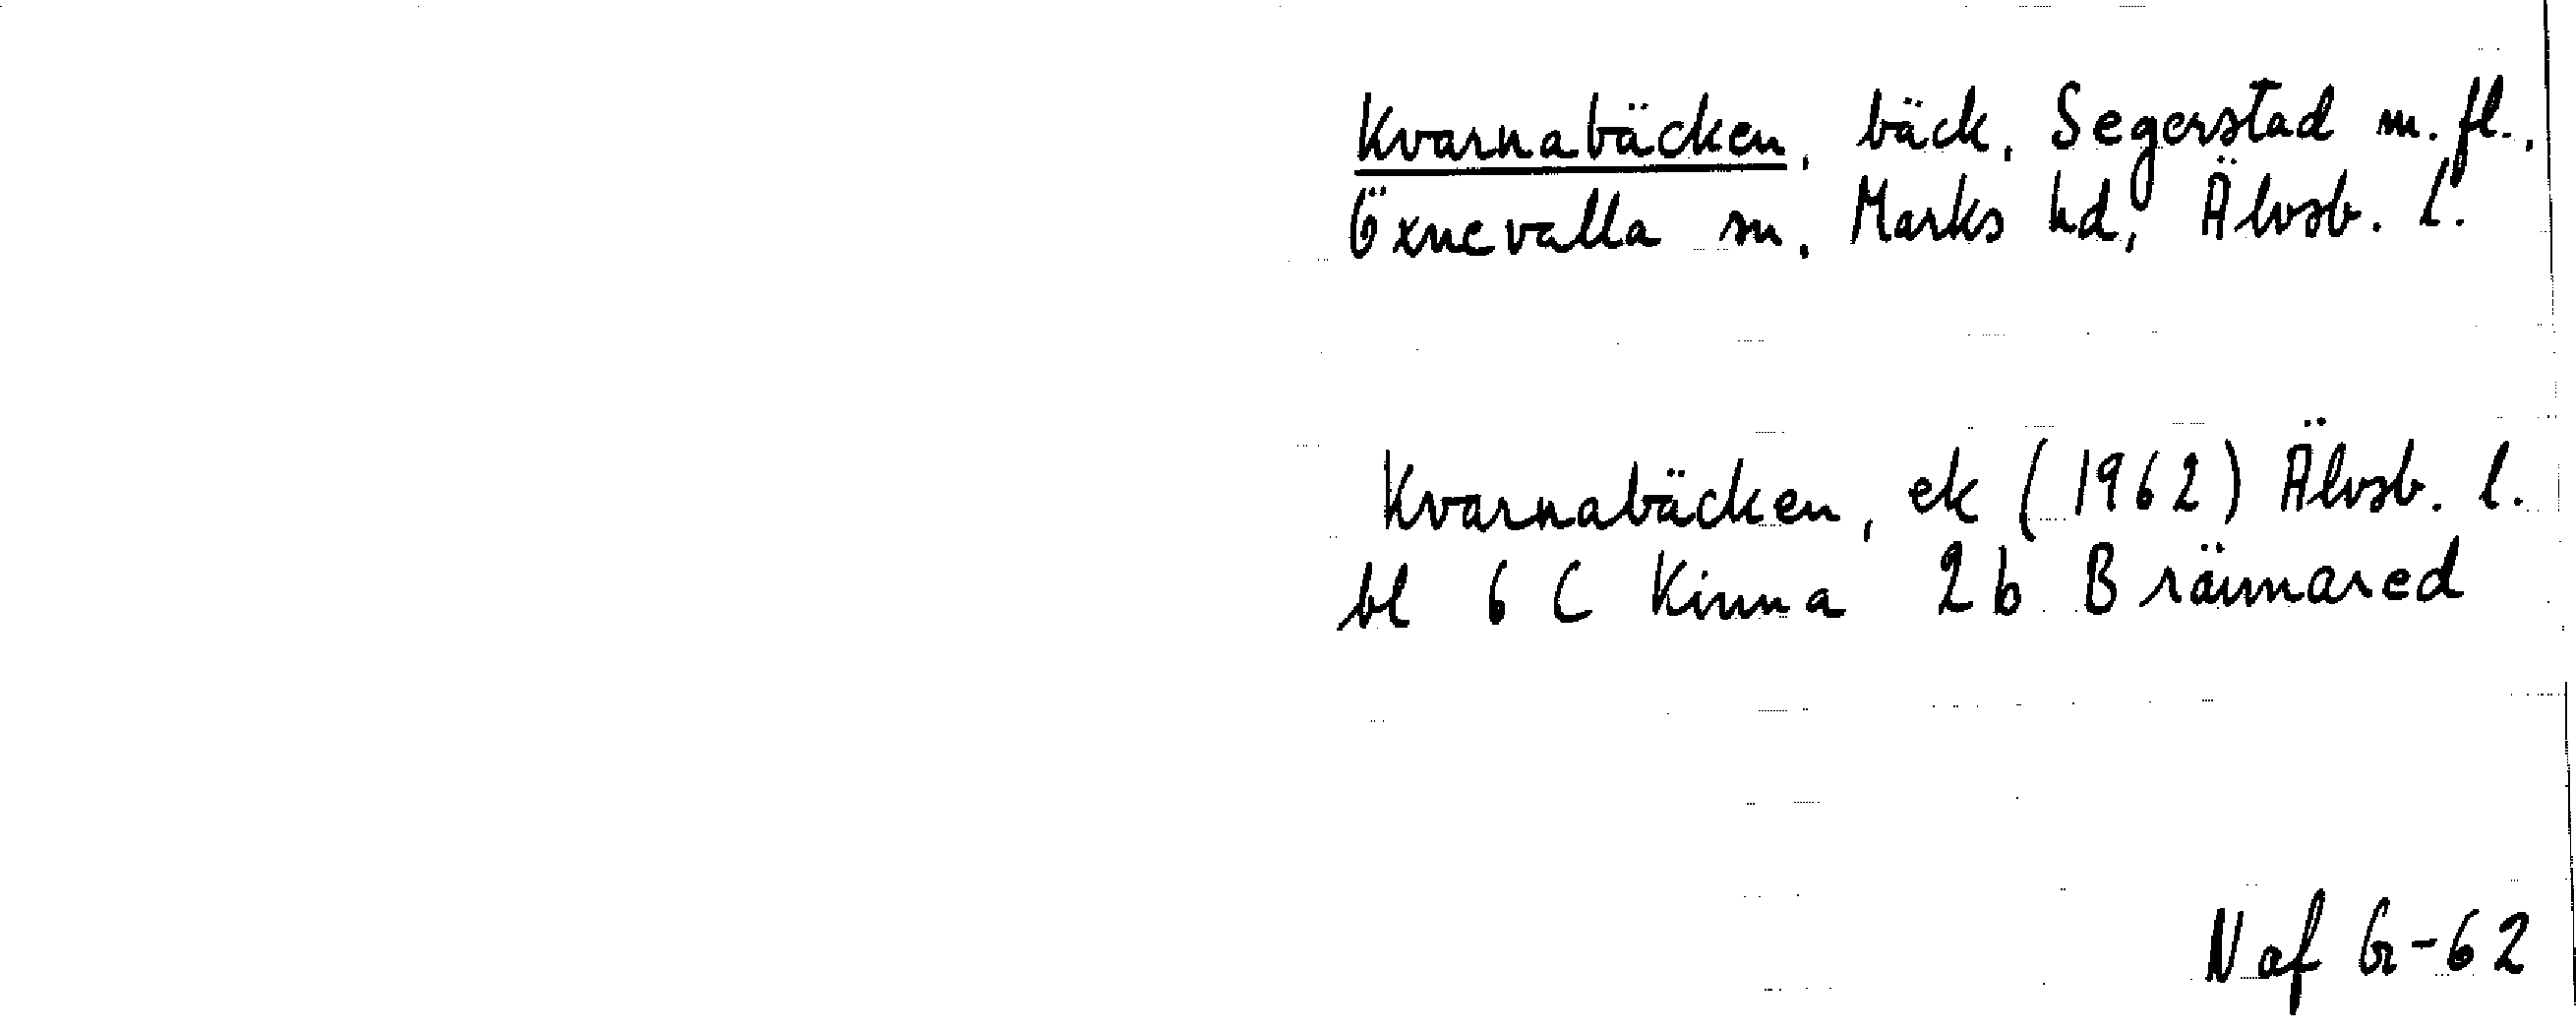 Kvarnabäcken, bäck, Segerstad m. fl.,
Öxnevalla sn, Marks hd, Älvsb. l.
Kvarnabäcken, ek (1962) Älvsb. l.
bl 6 C Kinna 2b Brännared
N af Gr-62